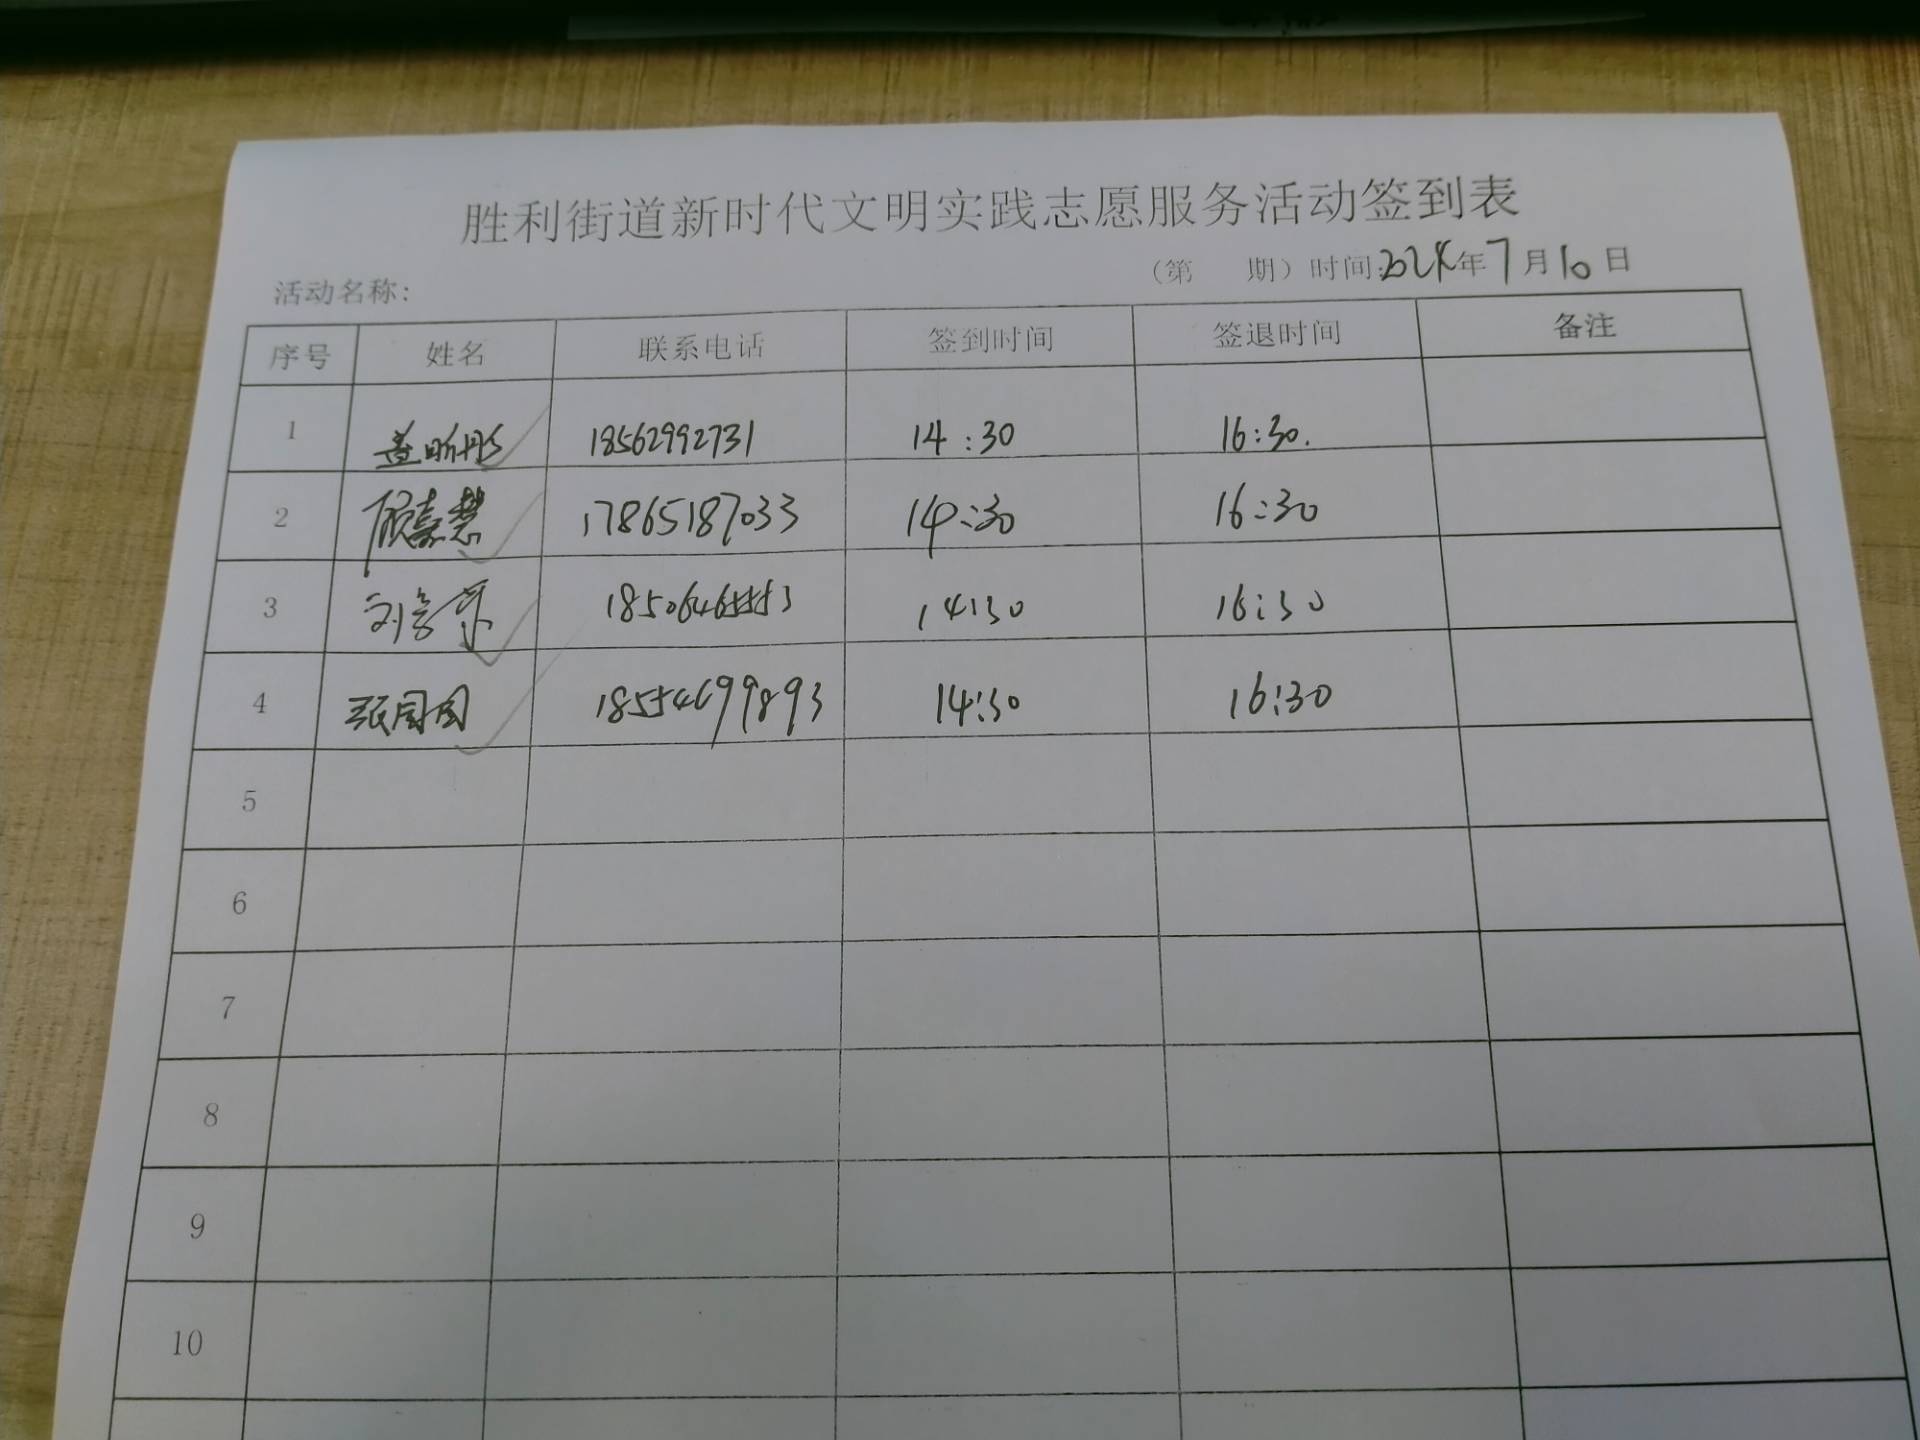 胜利街道新时代文明实践志愿服务活动签到表
活动名称: (第 期) 时间:2024年7月10日
序号 姓名 联系电话 签到时间 签退时间 备注
1 盖昕彤 18562992731 14:30 16:30.
2 顾嘉慧 17865187033 14:30 16:30
3 14:30 16:30
4 张園园 18554699893 14:30 16:30
5
6
7
8
9
10